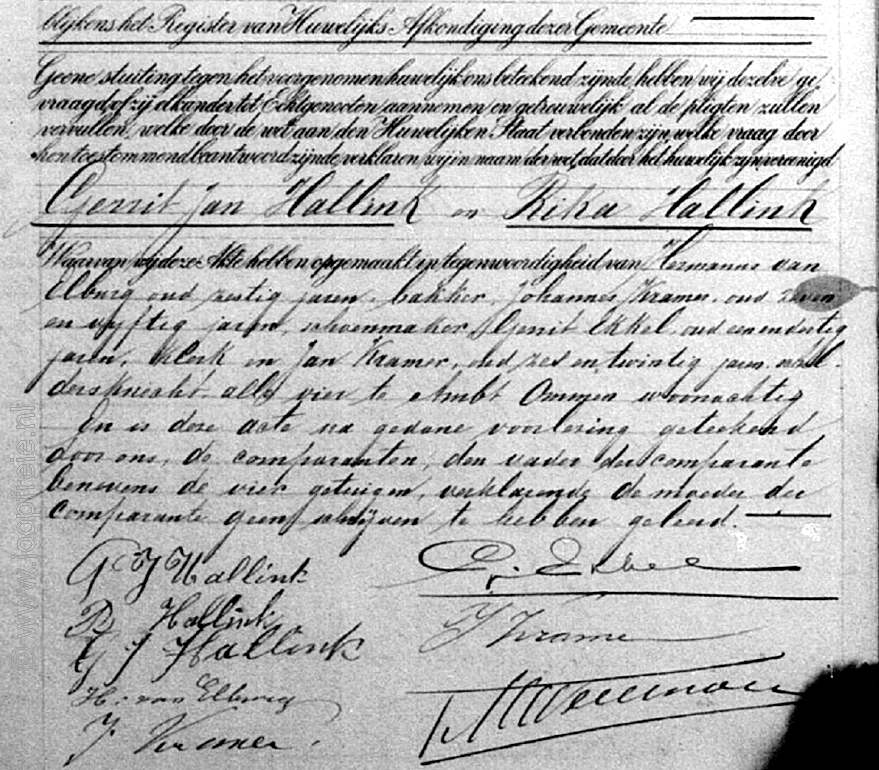 blijkens het Register van Huwelijks-Afkondiging dezer Gemeente
Geene stuiting tegen het voorgenomen huwelijk ons beteekend zijnde, hebben wij dezelve ge-
vraagd of zij elkander tot Echtgenooten aannemen en getrouwelijk al de pligten zullen
vervullen, welke door de wet aan den Huwelijken Staat verbonden zijn, welke vraag door
hen toestemmend beantwoord zijnde, verklaren wij in naam der wet, dat door het huwelijk zijn vereenigd
Gerrit Jan Hallink en Rika Hallink
Waarvan wij deze Akte hebben opgemaakt in tegenwoordigheid van Hermannus van
Elburg oud zestig jaren, bakker, Johannes Kramer, oud zeven
en vyftig jaren, schoenmaker, Gerrit Ekkel, oud eenendertig
jaren, klerk en Jan Kramer, oud zes en twintig jaren,
dersknecht alle vier te Ambt Ommen woonachtig
En is deze acte na gedane voorlezing geteekend
door ons, de comparanten, den vader der comparante
benevens de vier getuigen, verklarende de moeder der
comparante geen schrijven te hebben geleerd.
G J Hallink
G. Ekkel
R Hallink
G J Hallink
J Kramer
H. van Elburg
J. Kramer
www.logpietete.nl